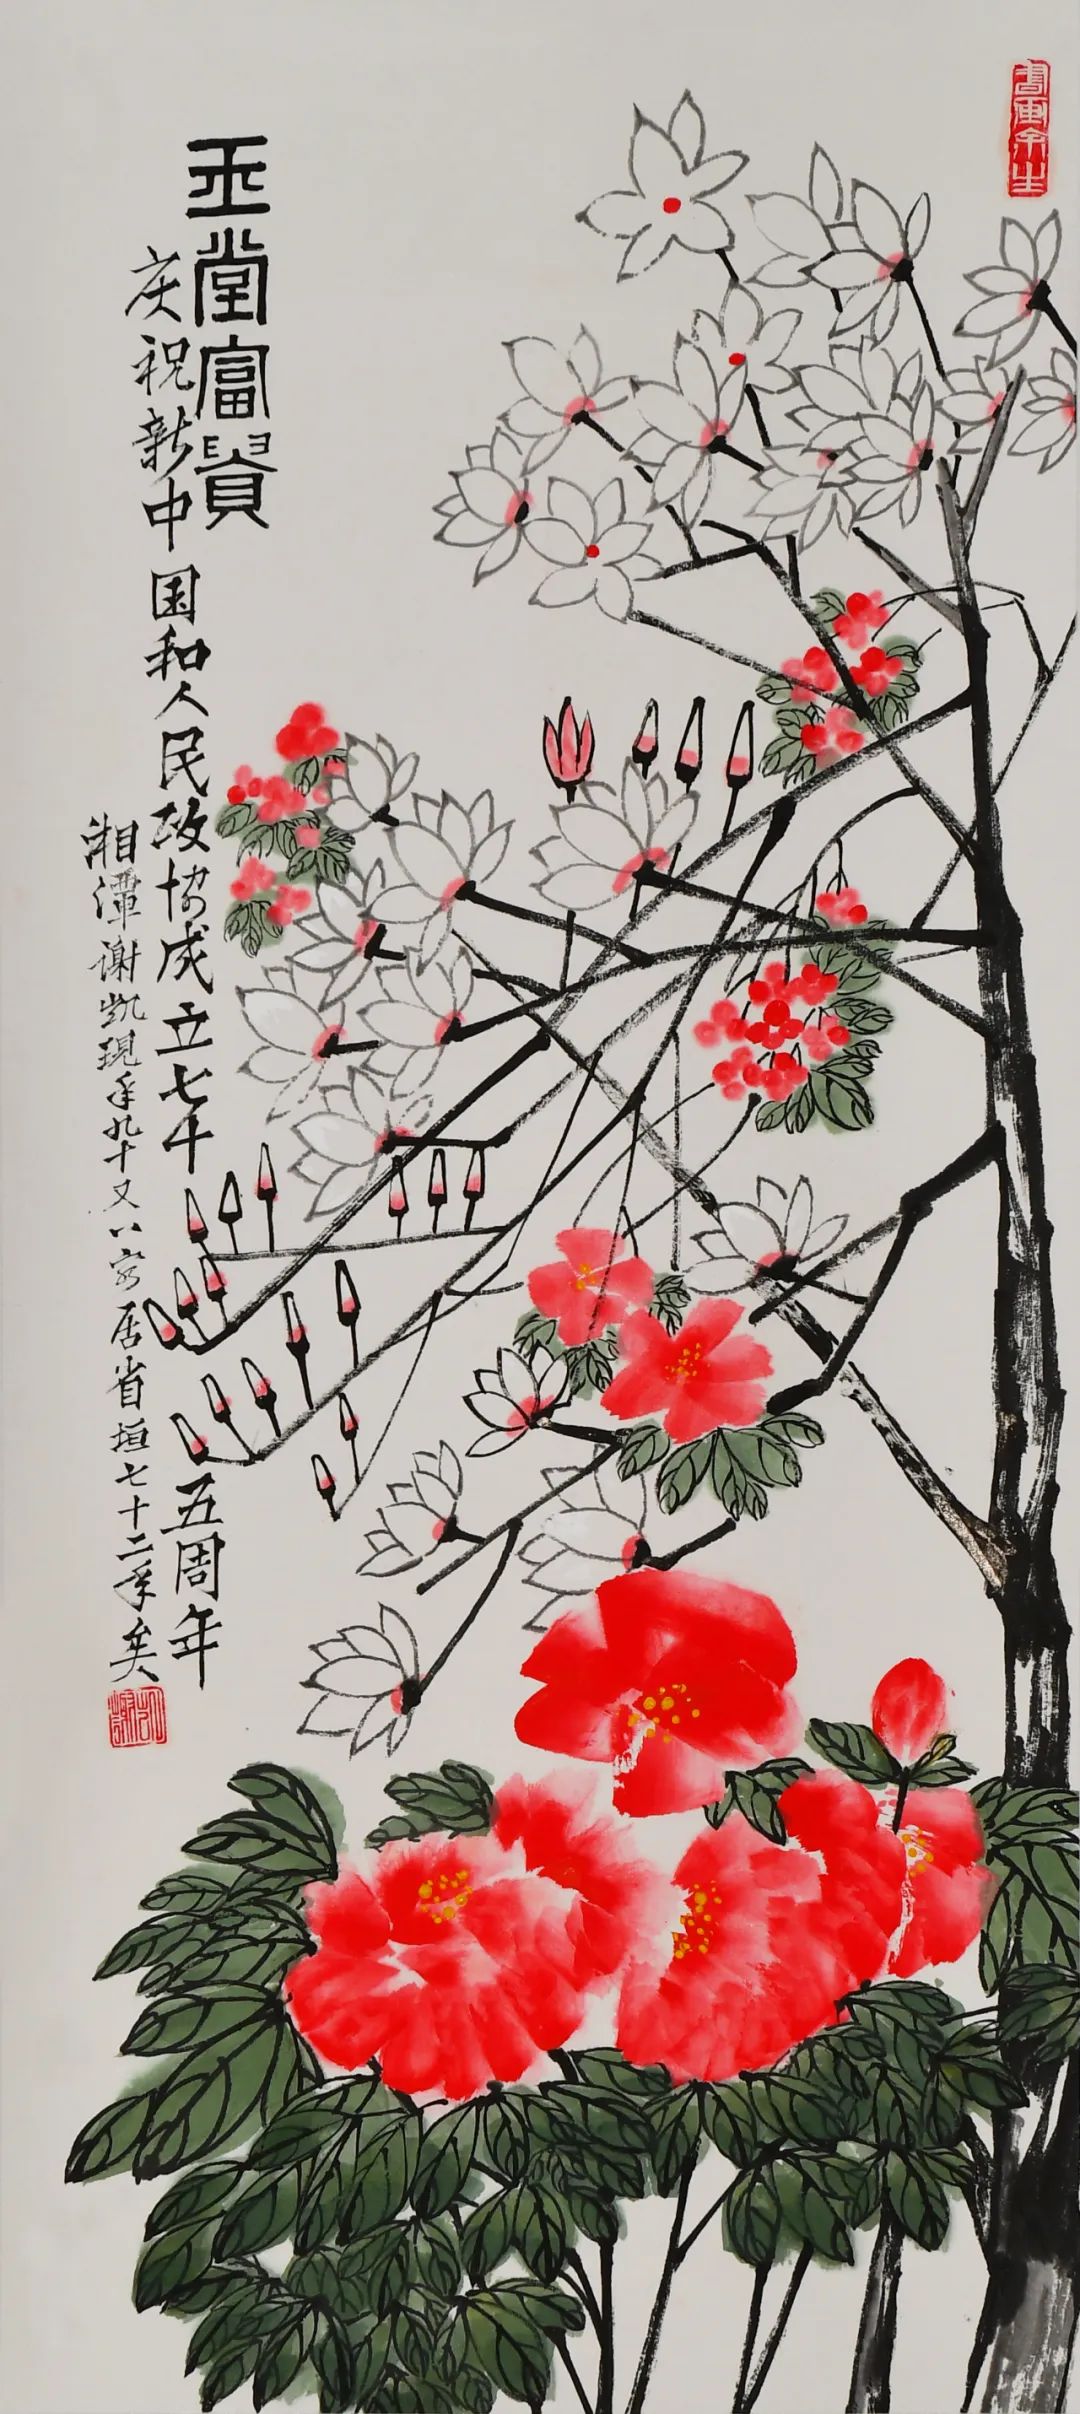 玉堂富贵
庆祝新中国和人民政协成立七十五周年
湘潭谢凯现年九十又八客居省垣七十二年矣
书画余生
谢凯